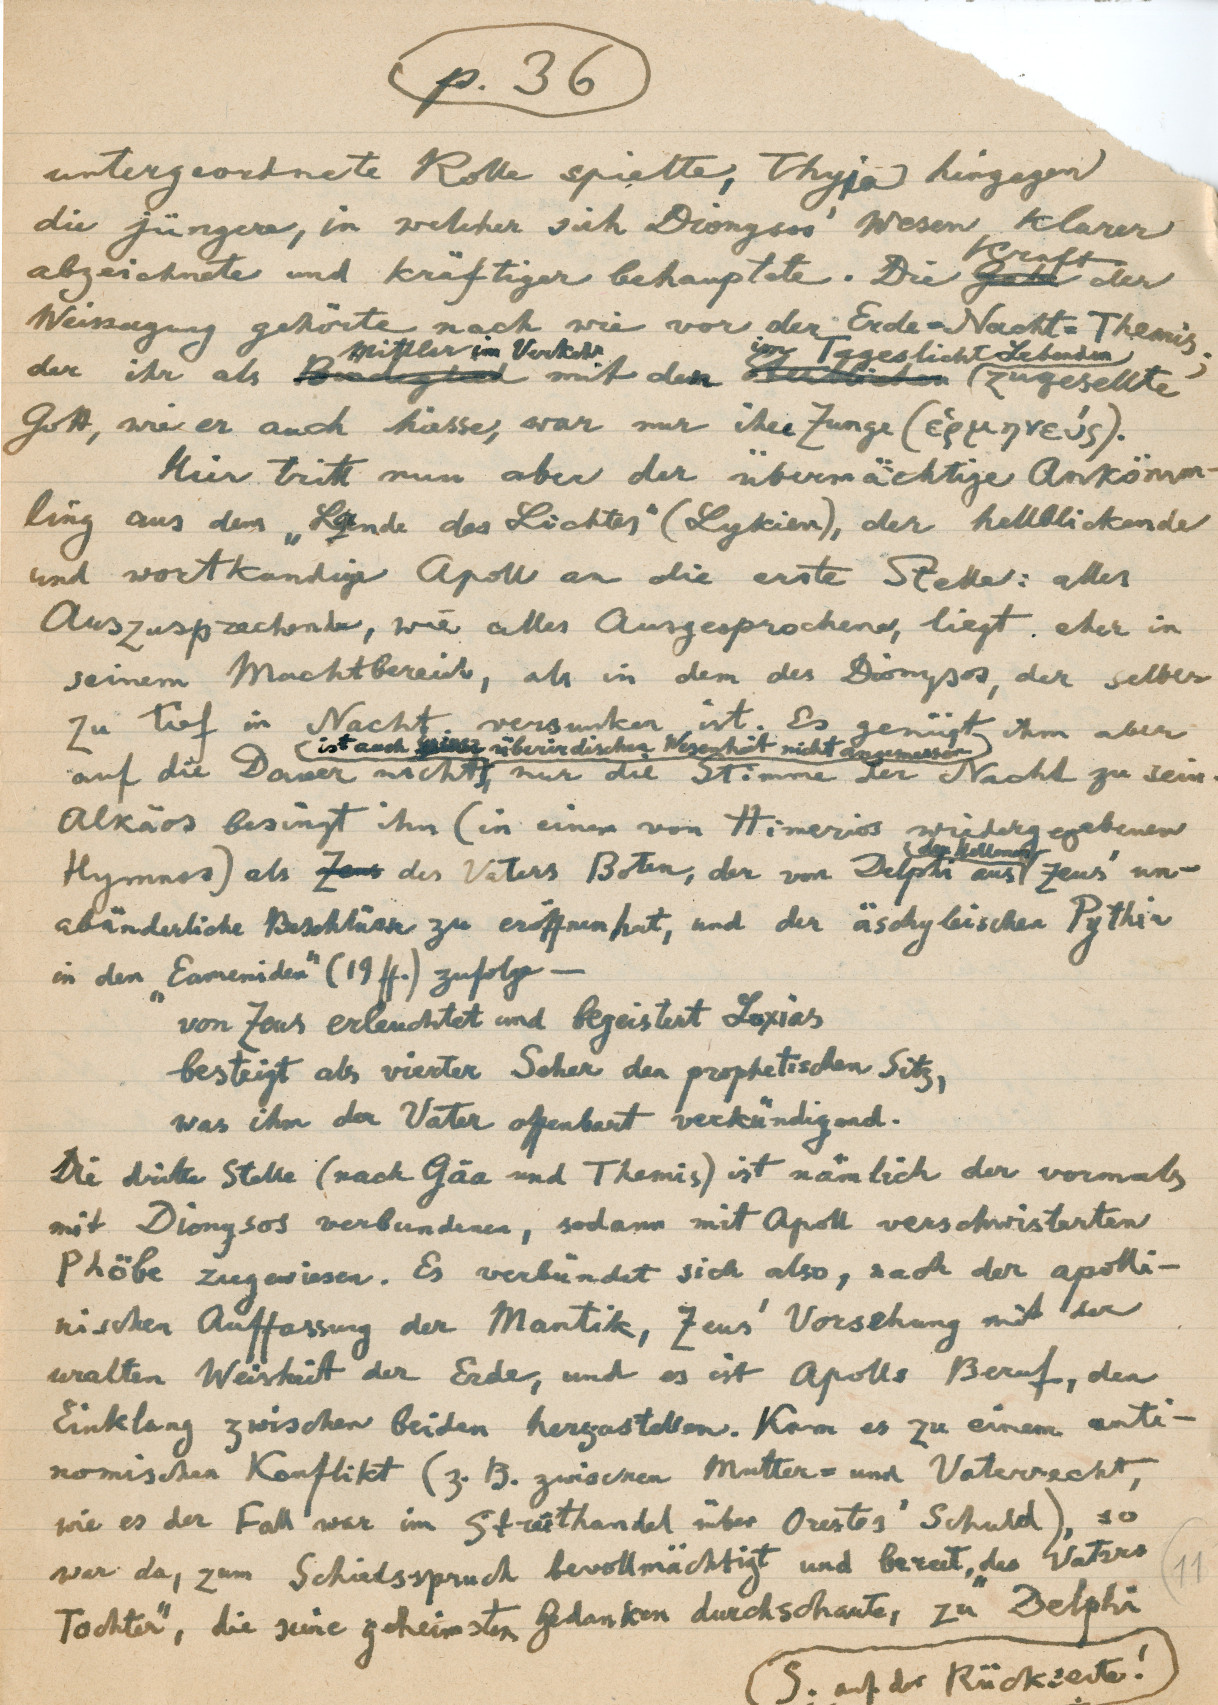 p. 36
untergeordnete Rolle spielte, Thyja hingegen
die jüngere, in welcher sich Dionysos' Wesen klarer
Kraft
abzeichnete und kräftiger behauptete. Die Gabe der
Weissagung gehörte nach wie vor der Erde-Nacht-Themis;
Mittler im Verkehr im Tageslicht Lebenden
der ihr als mit den zugesellte
Gott, wie er auch hiesse, war nur ihre Zunge (ἑρμηνεύς).
Hier tritt nun aber der übermächtige Ankömm-
ling aus dem „Lande des Lichtes" (Lykien), der hellblickende
und wortkundige Apoll an die erste Stelle: alles
Auszusprechende, wie alles Ausgesprochene, liegt eher in
seinem Machtbereich, als in dem des Dionysos, der selber
zu tief in Nacht versunken ist. Es genügt ihm aber
(ist auch seiner überirdischen Wesenheit nicht angemessen)
auf die Dauer nicht, nur die Stimme der Nacht zu sein.
Alkäos besingt ihn (in einem von Himerios wiedergegebenen
den Hellenen
Hymnos) als Zeus des Vaters Boten, der von Delphi aus Zeus' un-
abänderliche Beschlüsse zu eröffnen hat, und der äschyleischen Pythia
in den „Eumeniden" (19 ff.) zufolge —
von Zeus erleuchtet und begeistert Loxias
besteigt als vierter Seher den prophetischen Sitz,
was ihm der Vater offenbart verkündigend.
Die dritte Stelle (nach Gäa und Themis) ist nämlich der vormals
mit Dionysos verbundenen, sodann mit Apoll verschwisterten
Phöbe zugewiesen. Es verbündet sich also, nach der apolli-
nischen Auffassung der Mantik, Zeus' Vorsehung mit der
uralten Weisheit der Erde, und es ist Apolls Beruf, den
Einklang zwischen beiden herzustellen. Kam es zu einem anti-
nomischen Konflikt (z. B. zwischen Mutter- und Vaterrecht,
wie es der Fall war im Streithandel über Orestes' Schuld), so
war da, zum Schiedsspruch bevollmächtigt und bereit, „des Vaters
Tochter", die seine geheimsten Gedanken durchschaute, zu Delphi
11
S. auf der Rückseite!